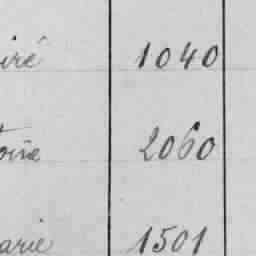 iré 1040
toine 2060
arie 1501